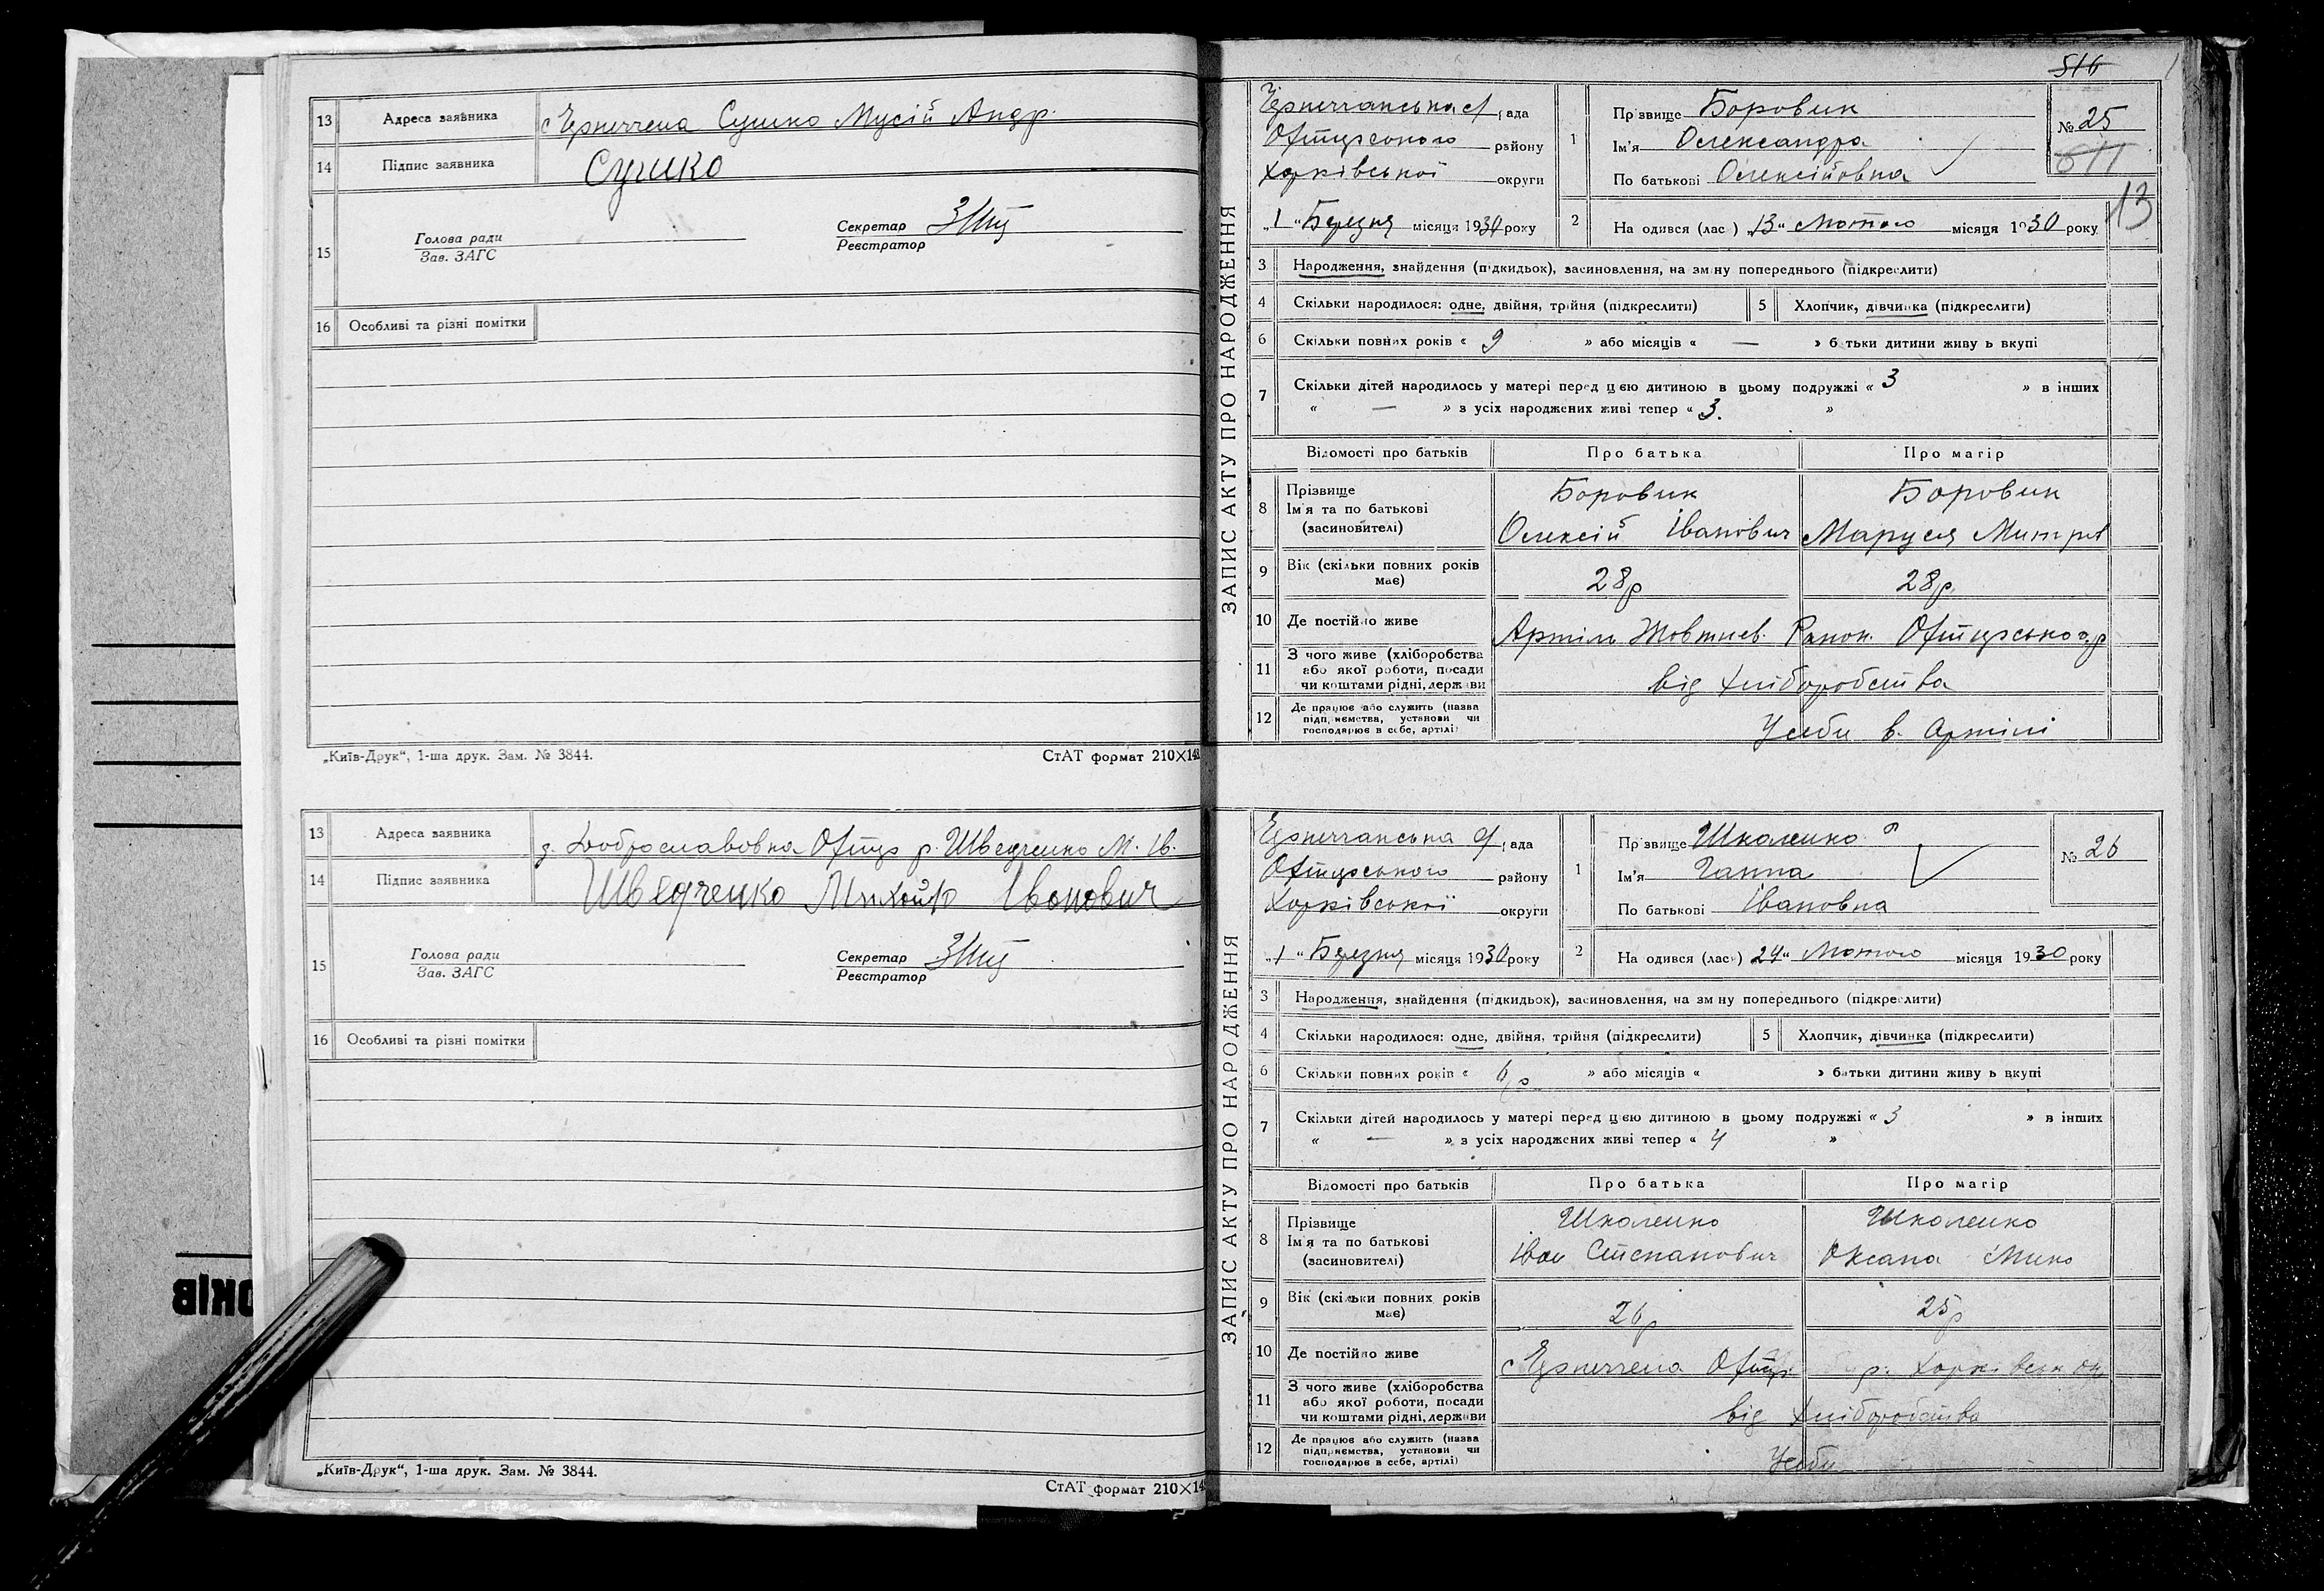 13 Адреса заявника Сушко Мусій Андр.
14 Підпис заявника Сушко
15 Голова ради Секретар
Зав. ЗАГС Реєстратор
16 Особливі та різні помітки
„Київ-Друк“, 1-ша друк. Зам. № 3844. СтАТ формат 210×14
13 Адреса заявника Доброславовка р. Шведченко М. Ів.
14 Підпис заявника Шведченко Михайло Іванович
15 Голова ради Секретар
Зав. ЗАГС Реєстратор
16 Особливі та різні помітки
„Київ-Друк“, 1-ша друк. Зам. № 3844. СтАТ формат 210×14
ОКІВ
516
ЗАПИС АКТУ ПРО НАРОДЖЕННЯ
ада
району
Харківської округи
„1“ Березня місяця 1930 року
1 Прізвище Боровик
Ім'я Олександра
По батькові Олексійовна
№ 25
511
13
2 На одився (лас ) „13“ Лютого місяця 1930 року
3 Народження, знайдення (підкидьок), засиновлення, на зміну попереднього (підкреслити)
4 Скільки народилося: одне, двійня, трійня (підкреслити) 5 Хлопчик, дівчинка (підкреслити)
6 Скільки повних років « 9 » або місяців « — » батьки дитини живуть вкупі
7 Скільки дітей народилось у матері перед цією дитиною в цьому подружжі « 3 » в інших
« — » з усіх народжених живі тепер « 3. »
Відомості про батьків Про батька Про матір
8 Прізвище Боровик Боровик
Ім'я та по батькові Олексій Іванович Маруся Митров
(засиновителі)
9 Вік (скільки повних років має) 28р 28р.
10 Де постійно живе Артіль Жовтнев.
11 З чого живе (хліборобства
або якої роботи, посади
чи коштами рідні, держави від хліборобства
12 Де працює або служить (назва
підприємства, установи чи
господарює в себе, артілі) У себи в. Артілі
ЗАПИС АКТУ ПРО НАРОДЖЕННЯ
ада
району
Харківської округи
„1“ Березня місяця 1930 року
1 Прізвище Школенко
Ім'я Ганна
По батькові Івановна
№ 26
2 На одився (лась) 24“ Лютого місяця 1930 року
3 Народження, знайдення (підкидьок), засиновлення, на зміну попереднього (підкреслити)
4 Скільки народилося: одне, двійня, трійня (підкреслити) 5 Хлопчик, дівчинка (підкреслити)
6 Скільки повних років « 6р » або місяців « » батьки дитини живуть вкупі
7 Скільки дітей народилось у матері перед цією дитиною в цьому подружжі « 3 » в інших
« — » з усіх народжених живі тепер « 4 »
Відомості про батьків Про батька Про матір
8 Прізвище Школенко Школенко
Ім'я та по батькові Іван Степанович Оксана Мико
(засиновителі)
9 Вік (скільки повних років має) 26р 25р
10 Де постійно живе р. Харківськ ок
11 З чого живе (хліборобства
або якої роботи, посади
чи коштами рідні, держави від хліборобства
12 Де працює або служить (назва
підприємства, установи чи
господарює в себе, артілі) У себи